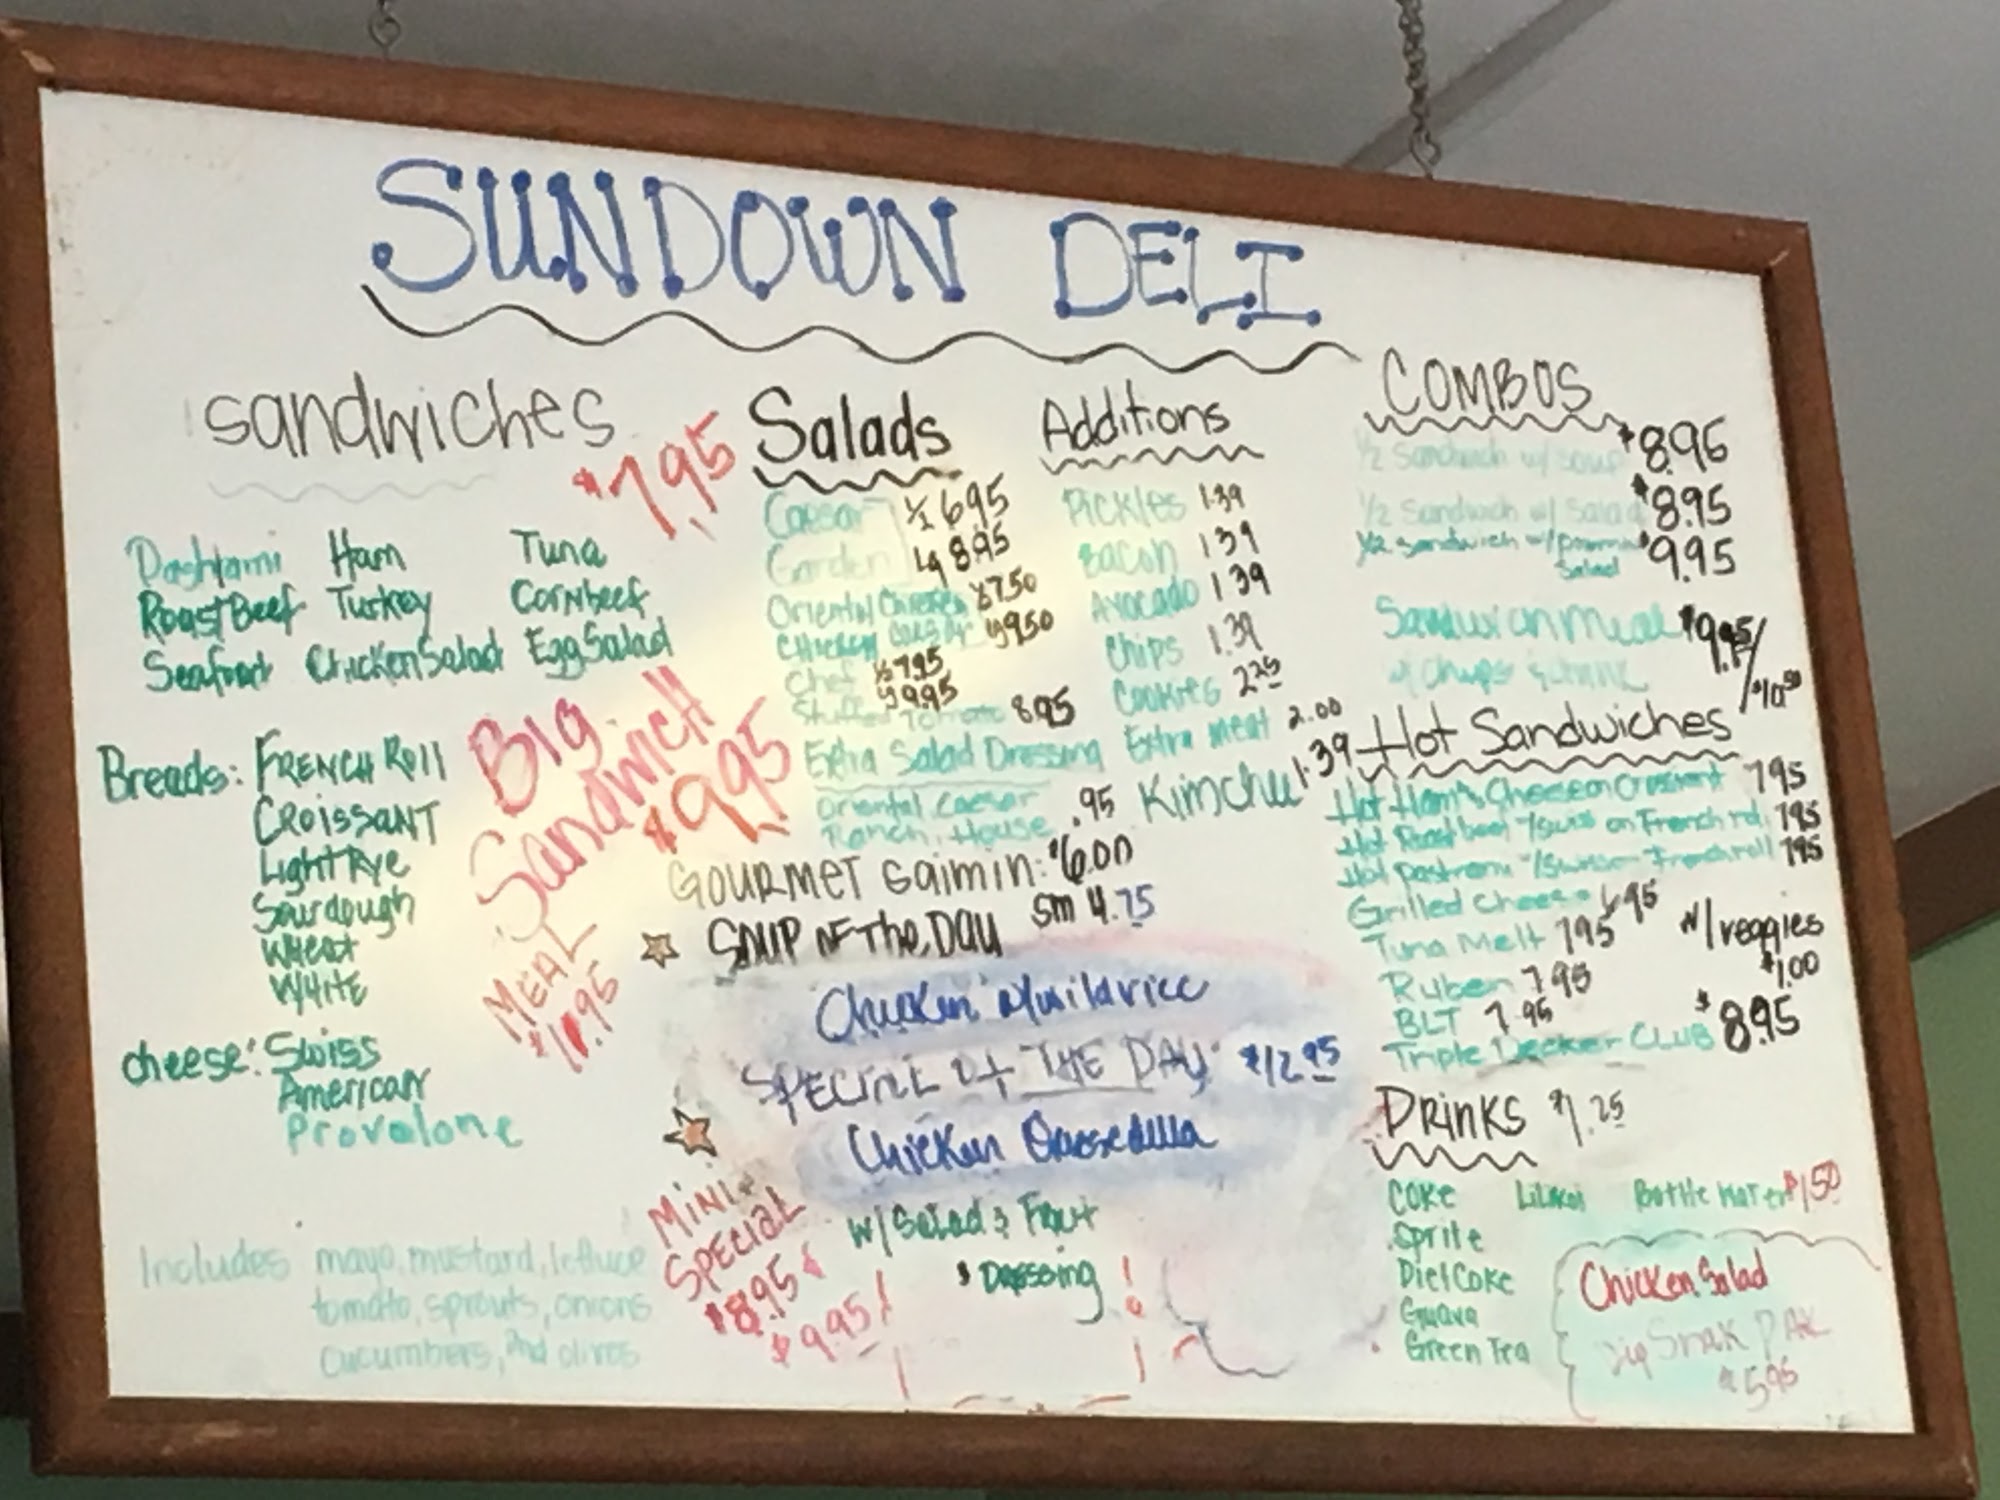 SUNDOWN DELI
Sandwiches
$7.95
Pastrami Ham Tuna
Roast Beef Turkey Cornbeef
Seafood Chicken Salad Egg Salad
Breads: FRENCH ROll
CROISSANT
Light Rye
Sourdough
Wheat
WHITE
cheese: Swiss
American
Provolone
BIG
Sandwich
$9.95
MEAL
$11.95
Includes mayo, mustard, lettuce
tomato, sprouts, onions
cucumbers, and olives
Salads
Caesar ½ 6.95
Garden Lg 8.95
Oriental Chicken ½ 7.50
Chicken Caesar Lg 9.50
Chef ½ 7.95
Lg 9.95
Stuffed Tomato 8.95
Extra Salad Dressing
Oriental Caesar .95
Ranch, House
Additions
Pickles 1.39
Bacon 1.39
Avocado 1.39
Chips 1.39
Cookies 2.25
Extra meat 2.00
Kimchee 1.39
GOURMET Saimin: $6.00
sm 4.75
SOUP OF The DAY
Chicken Wildrice
SPECIAL of THE DAY $12.95
Chicken Quesedilla
w/ Salad & Fruit
& Dressing
MINI
SPECIAL
$8.95
$9.95
COMBOS
½ Sandwich w/ soup $8.95
½ Sandwich w/ Salad $8.95
½ Sandwich w/ $9.95
Salad
Sandwich Meal $9.95/
w/ chips & drink /$10.50
Hot Sandwiches
Hot Ham & Cheese on Croissant 7.95
Hot Roast beef w/ Swiss on French roll 7.95
Hot Pastrami w/ Swiss on French roll 7.95
Grilled Cheese 6.95
Tuna Melt 7.95 w/ veggies
Ruben 7.95 $1.00
BLT 7.95
Triple Decker CLUB $8.95
DRINKS $1.25
COKE Lilikoi Bottle Water $1.50
Sprite
Diet Coke
Guava
Green Tea
Chicken Salad
Snak PAK
$5.95